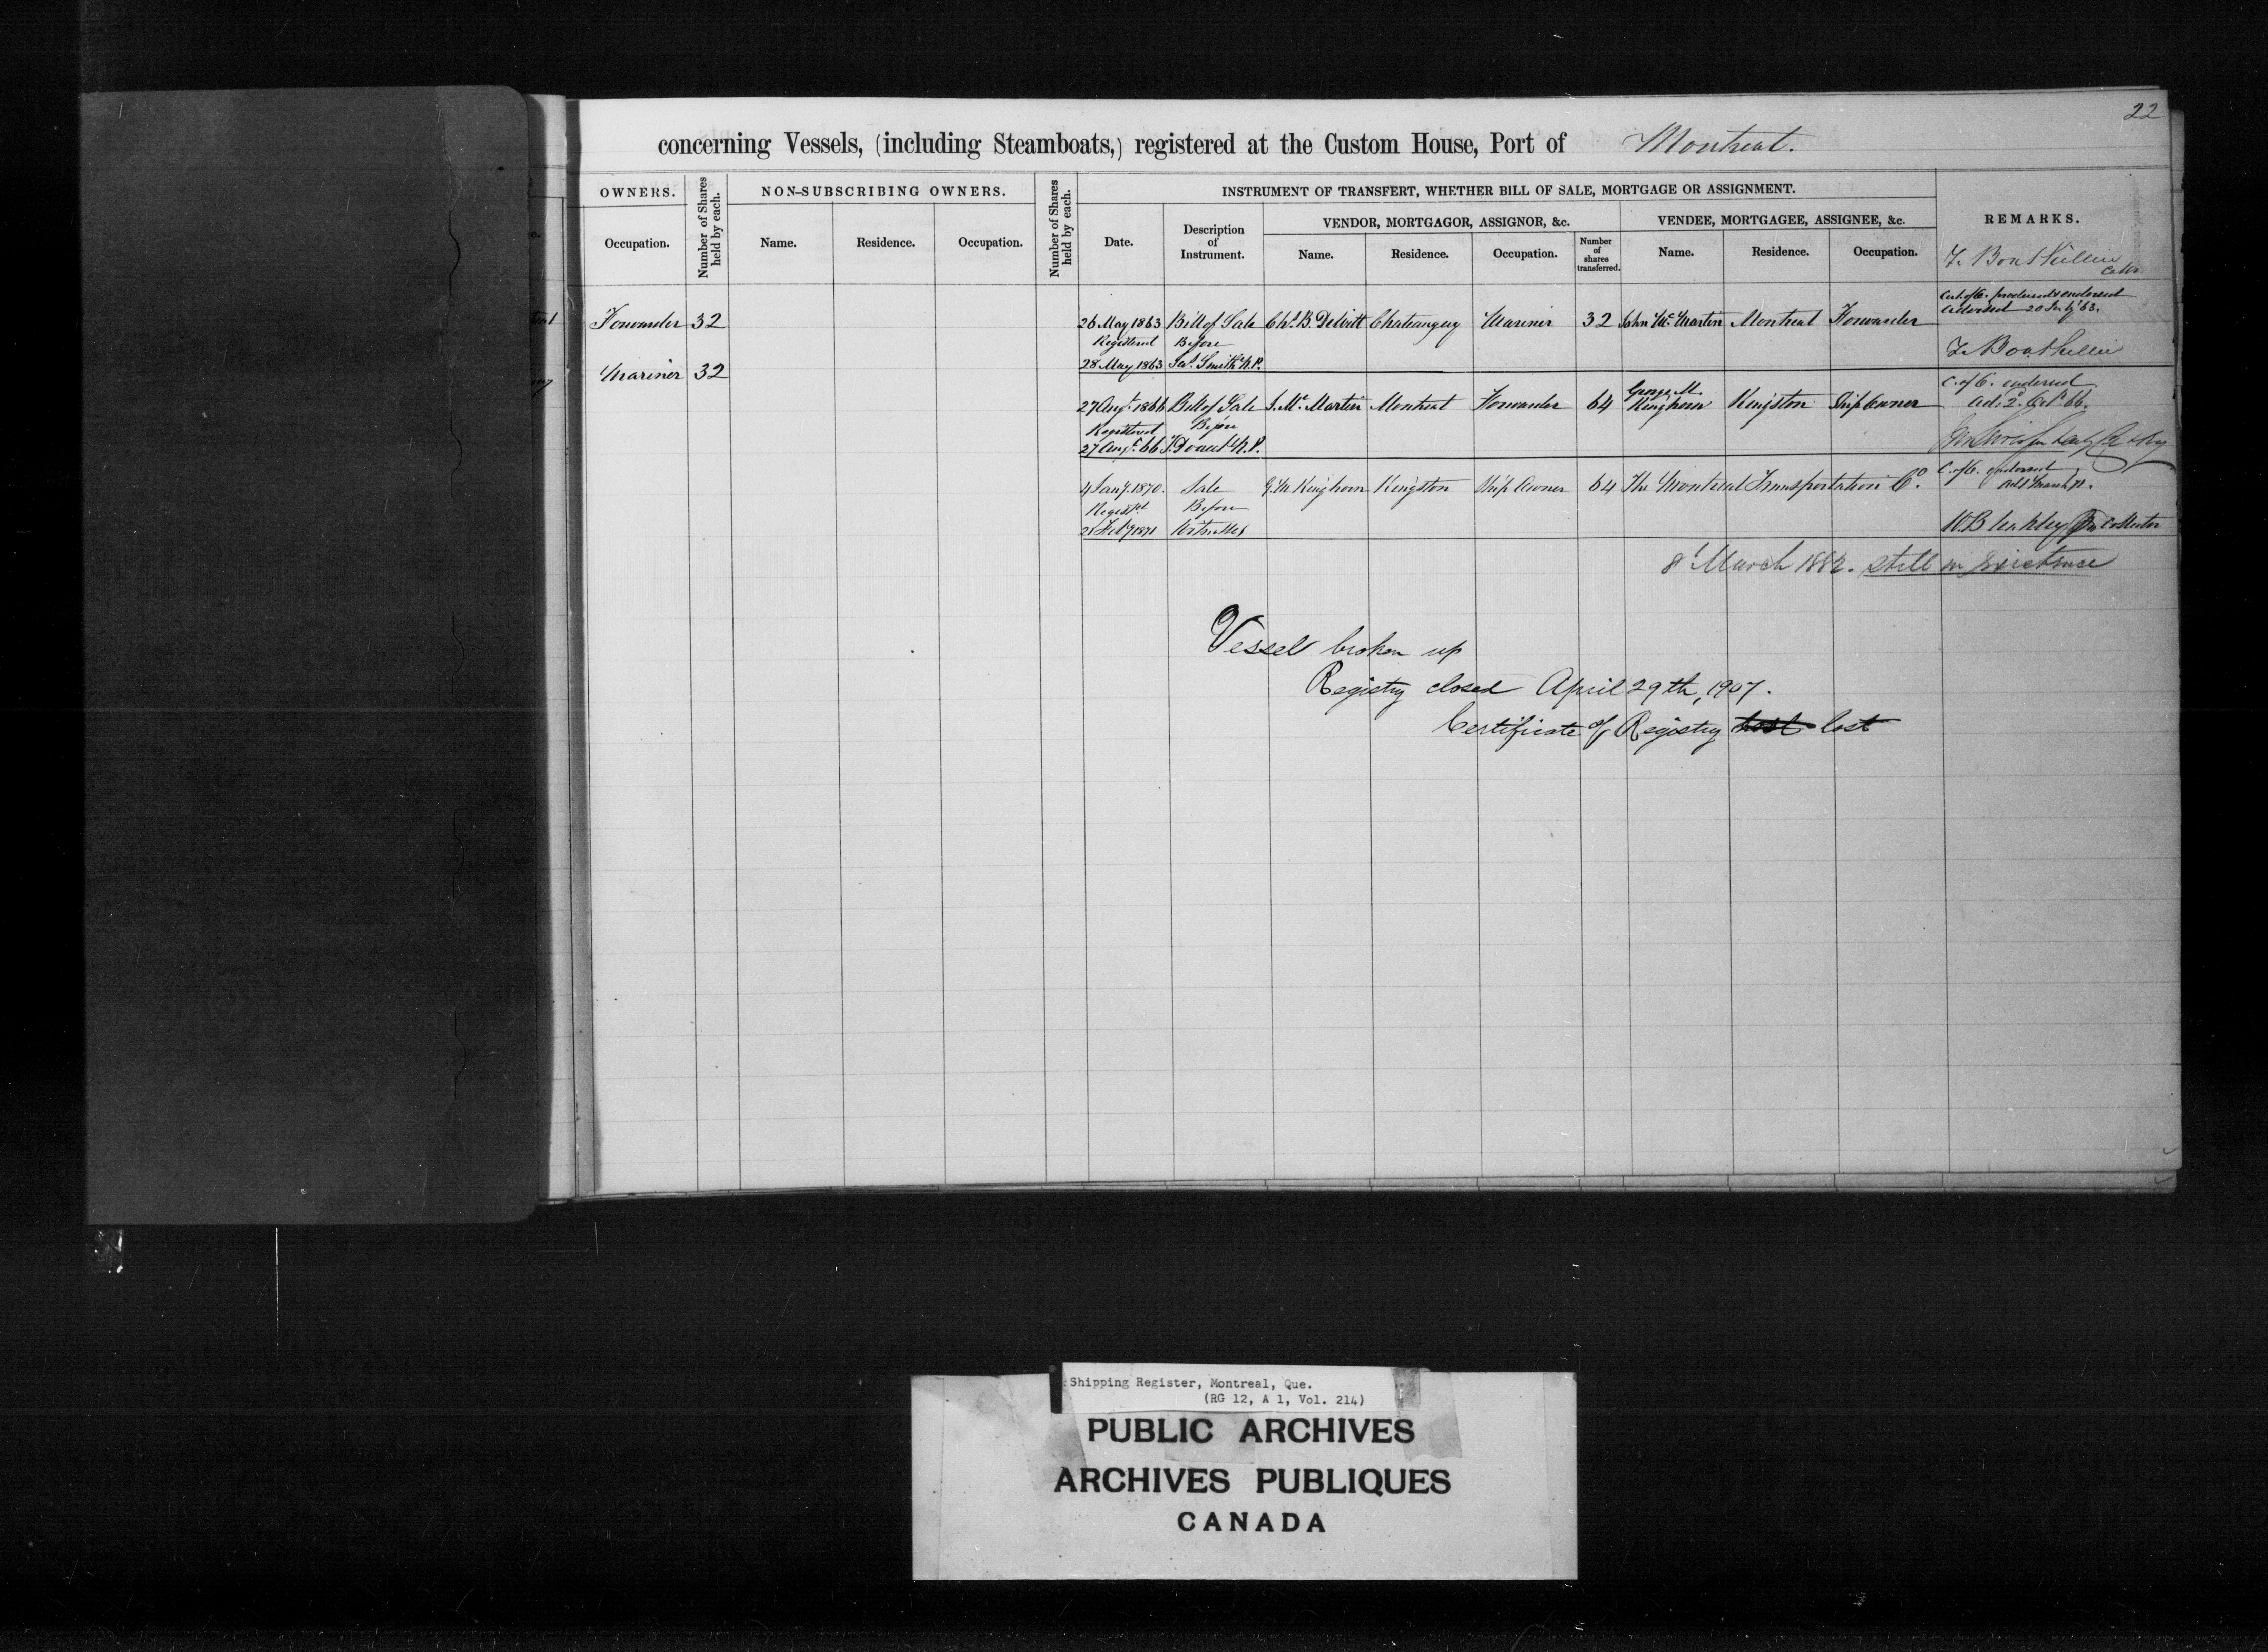 22
concerning Vessels, (including Steamboats,) registered at the Custom House, Port of Montreal.
OWNERS.
Number of Shares held by each.
NON-SUBSCRIBING OWNERS.
Number of Shares held by each.
INSTRUMENT OF TRANSFERT, WHETHER BILL OF SALE, MORTGAGE OR ASSIGNMENT.
REMARKS.
VENDOR, MORTGAGOR, ASSIGNOR, &c.
VENDEE, MORTGAGEE, ASSIGNEE, &c.
Occupation.
Name.
Residence.
Occupation.
Date.
Description of Instrument.
Name.
Residence.
Occupation.
Number of shares transferred.
Name.
Residence.
Occupation.
Forwarder 32
26 May 1863 Bill of Sale Chs. B. DeWitt Chateauguy Mariner 32 John McMartin Montreal Forwarder
Registered Before
28 May 1863 Jas. Smith N.P.
Mariner 32
27 Augt. 1866 Bill of Sale J. McMartin Montreal Forwarder 64 George M. Kinghorn Kingston Ship Owner
C. of C. endorsed
Registered Before
27 Augt. 66 N.P.
4 Jany. 1870. Sale G. M. Kinghorn Kingston Ship Owner 64 The Montreal Transportation Co.
C. of C. endorsed
Registd. Before
Feby 1871 Witnesses
Collector
8t March 1882. still in existence
Vessel broken up
Registry closed April 29th, 1907.
Certificate of Registry lost
Shipping Register, Montreal, Que.
(RG 12, A 1, Vol. 214)
PUBLIC ARCHIVES
ARCHIVES PUBLIQUES
CANADA